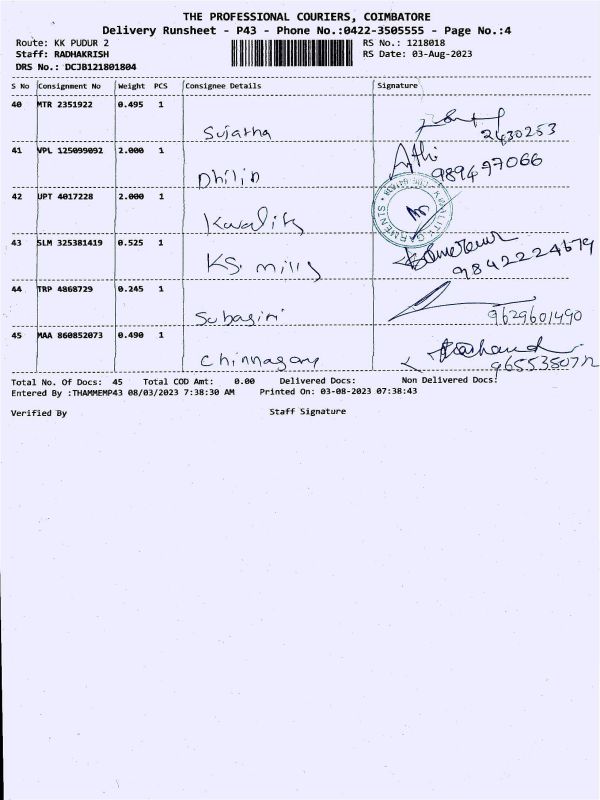 THE PROFESSIONAL COURIERS, COIMBATORE
Delivery Runsheet - P43 - Phone No.:0422-3505555 - Page No.:4
Route: KK PUDUR 2 RS No.: 1218018
Staff: RADHAKRISH RS Date: 03-Aug-2023
DRS No.: DCJB121801804
S No Consignment No Weight PCS Consignee Details Signature
40 MTR 2351922 0.495 1
Sujatha 2430253
41 VPL 125099092 2.000 1
Dhilip Athi 989497066
42 UPT 4017228 2.000 1
Kwality KWALITY GARMENTS
43 SLM 325381419 0.525 1
KS. mills 9842224679
44 TRP 4868729 0.245 1
Suhagini 9629601490
45 MAA 860852073 0.490 1
Chinnagany
Total No. Of Docs: 45 Total COD Amt: 0.00 Delivered Docs: Non Delivered Docs:
Entered By :THAMMEMP43 08/03/2023 7:38:30 AM Printed On: 03-08-2023 07:38:43
Verified By Staff Signature